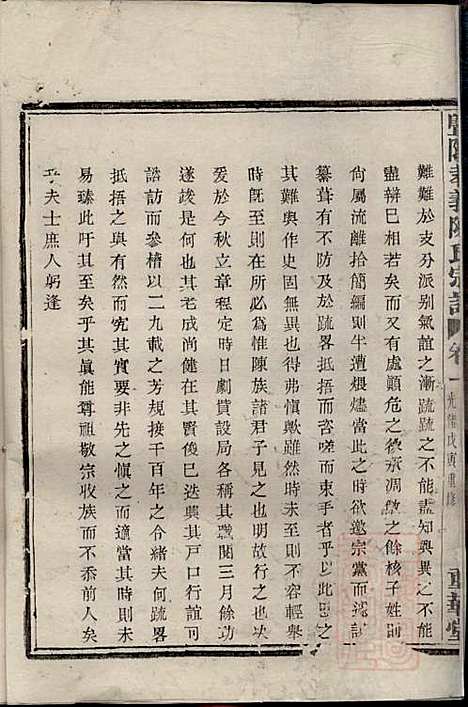 暨陽孝義陳氏宗譜 卷一 光緒戊寅重修 重華堂
難難於支分派別氣誼之漸疏疏之不能盡知與異之不能
盡辨巳相若矣而又有處顛危之後承凋敝之餘核子姓則
尙屬流離拾簡編則半遭煨燼當此之時欲邀宗黨而謠諑
纂葺有不防及於疏畧抵捂而咨嗟而束手者乎以此思之
其難與作史固無異也得弗愼歟雖然時未至固不容輕舉
時旣至則在所必爲惟陳族諸君子見之也明故行之也决
爰於今秋立章程定時日劇貲設局各稱其職閱三月餘功
遂竣是何也其老成尙健在其賢俊巳迭興其戶口行誼可
諮訪而參稽以二九載之芳規接千百年之令緒夫何疏畧
抵捂之與有然而究其實要非先之愼之而適當其時則未
易臻此吁其至矣乎其眞能尊祖敬宗收族而不忝前人矣
乎夫士庶人躬逢